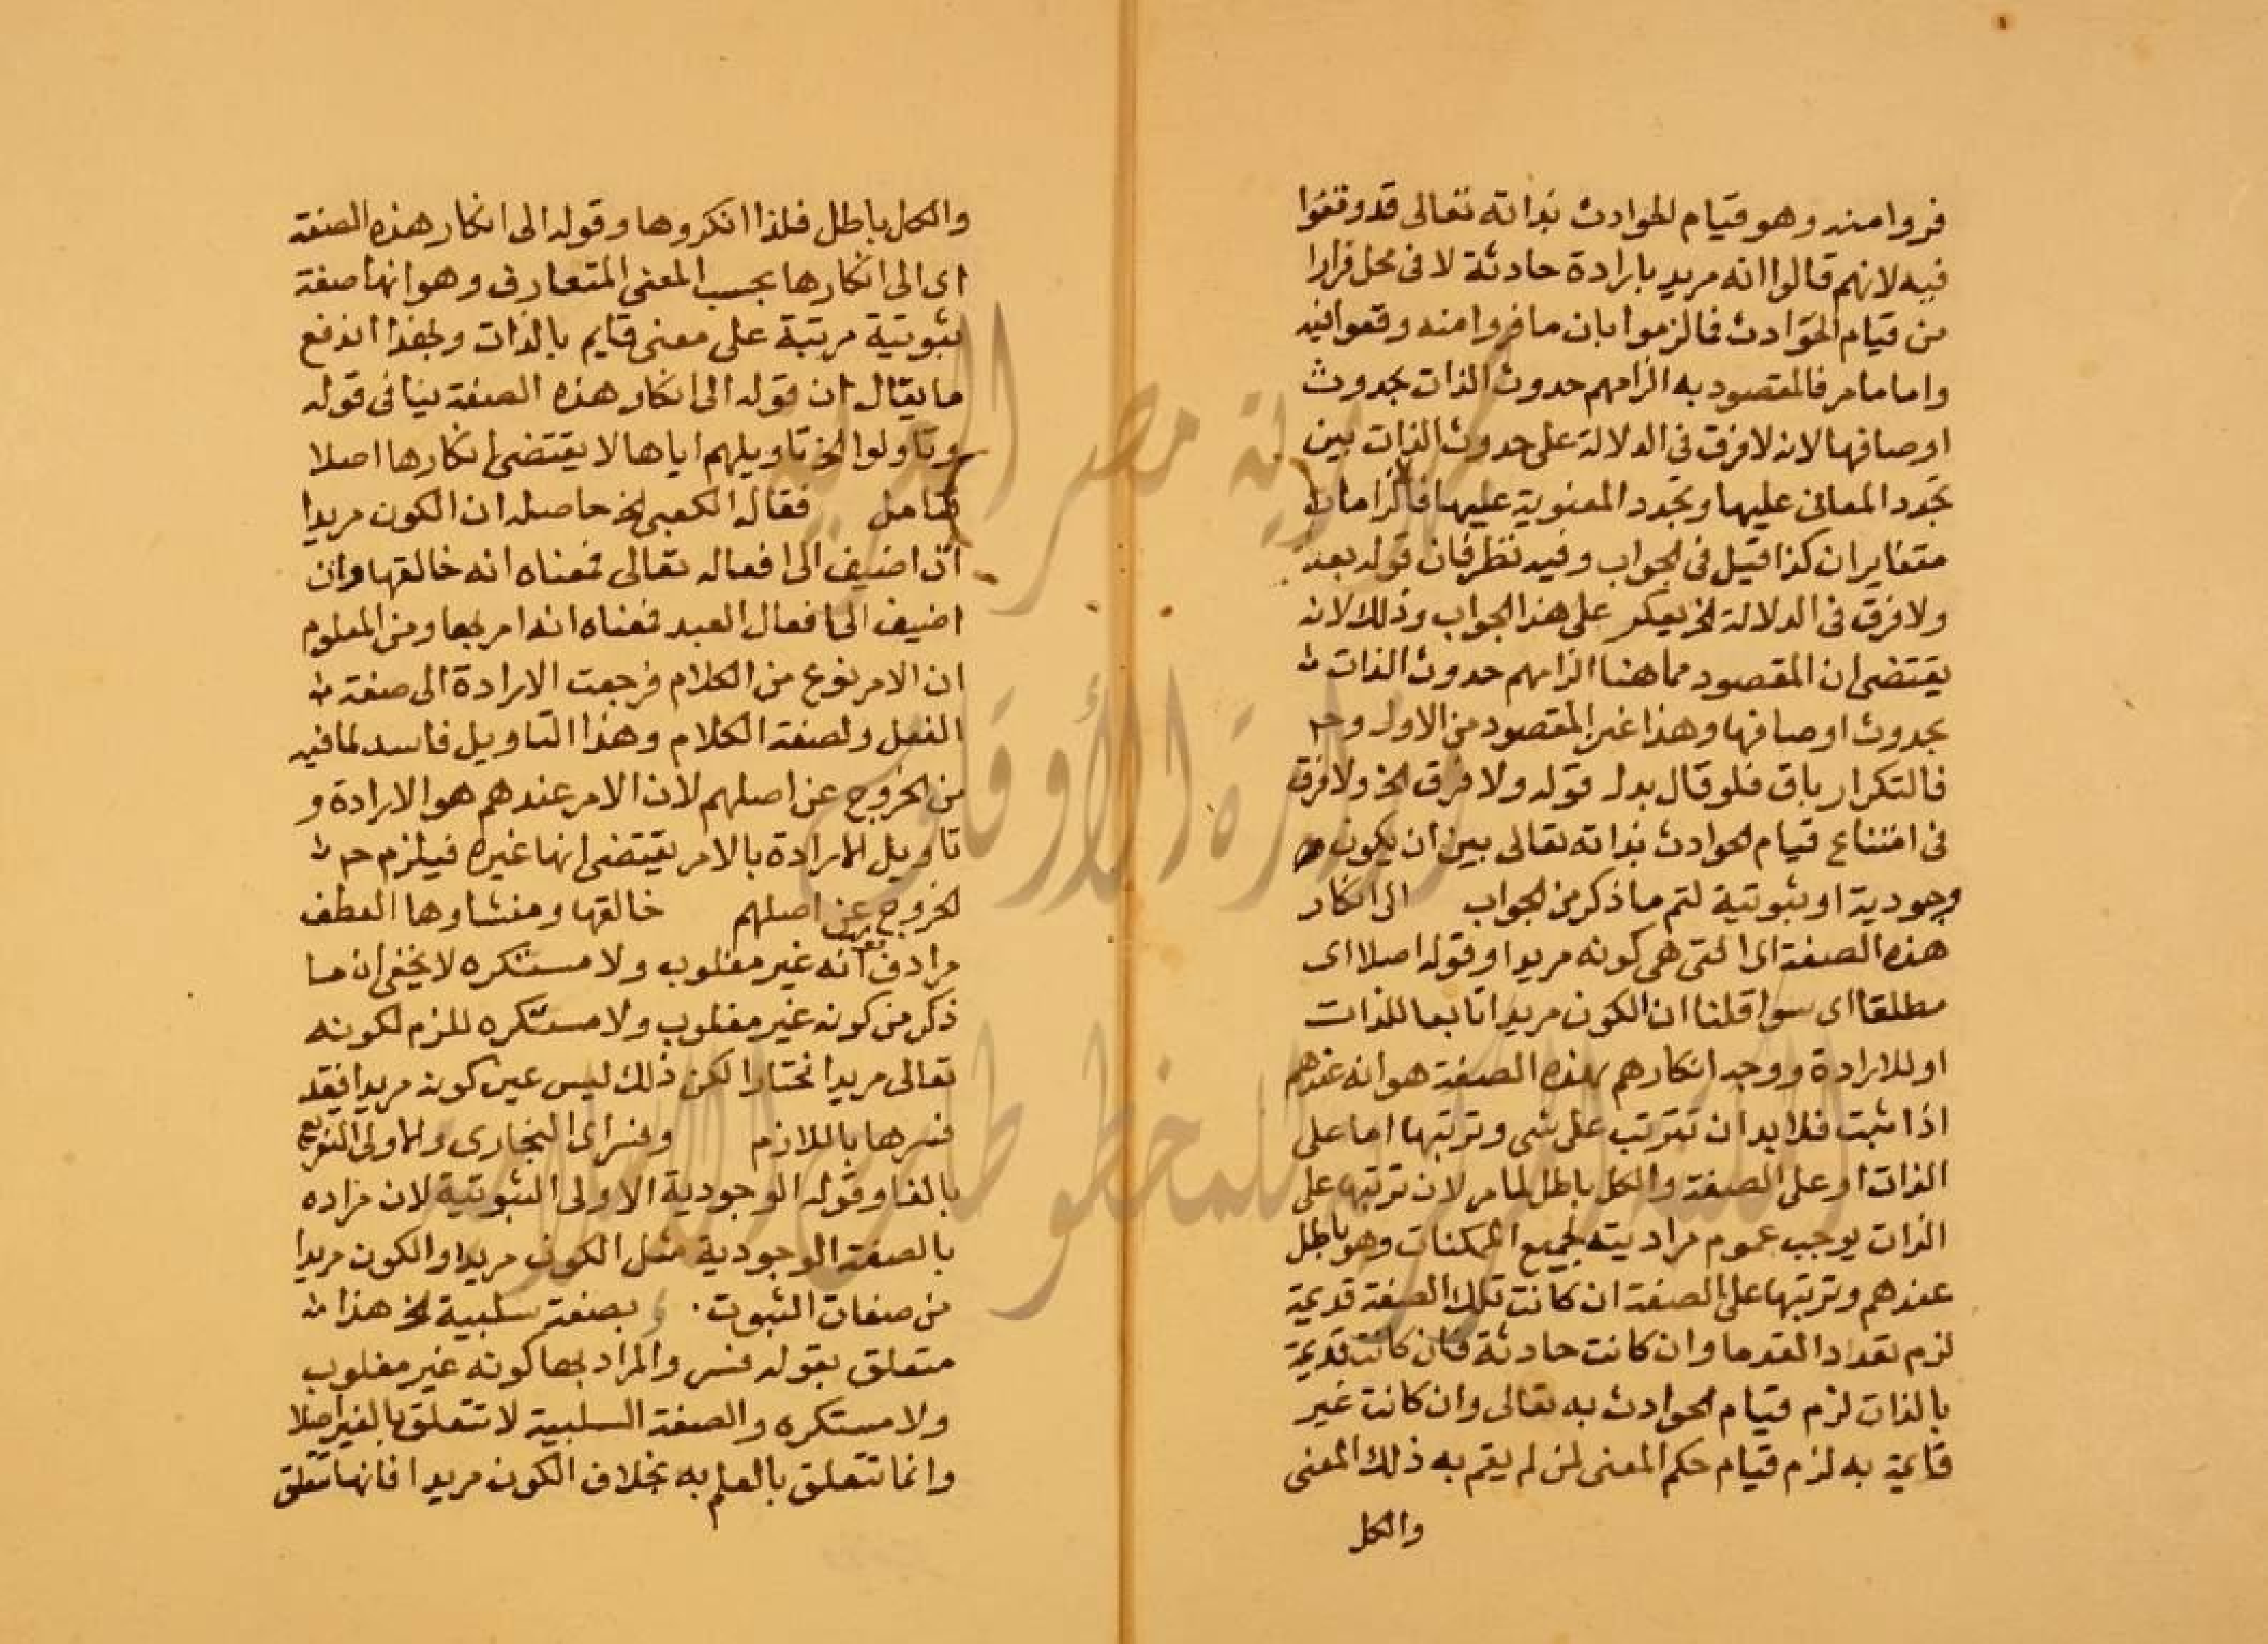 فروا منه وهو قيام الحوادث بذاته تعالى قد وقعوا
فيه لانهم قالوا انه مريد بارادة حادثة لا فى محل فرارا
من قيام الحوادث فالزموا بان ما فروا منه وقعوا فيه
واما ما مر فالمقصود به الزامهم حدوث الذات بحدوث
اوصافها لانه لا فرق فى الدلالة على حدوث الذات بين
تجدد المعانى عليها وتجدد المعنوية عليها فالالزامان
متغايران كذا قيل فى الجواب وفيه نظر فان قوله بعد
ولا فرق فى الدلالة الخ يعكر على هذا الجواب وذلك لانه
يقتضى ان المقصود مما هنا الزامهم حدوث الذات
بحدوث اوصافها وهذا غير المقصود من الاول وح
فالتكرار باق فلو قال بدل قوله ولا فرق الخ ولا فرق
فى امتناع قيام الحوادث بذاته تعالى بين ان يكون
وجودية او ثبوتية لتم ما ذكر من الجواب الى انكار
هذه الصفة اى التى هى كونه مريدا وقوله اصلا اى
مطلقا اى سوا قلنا ان الكون مريدا تابعا للذات
او للارادة ووجه انكارهم لهذه الصفة هو انه عندهم
اذا ثبت فلا بد ان تترتب على شى وترتبها اما على
الذات او على الصفة والكل باطل لما مر لان ترتبها على
الذات يوجب عموم مراديته لجميع الممكنات وهو باطل
عندهم وترتبها على الصفة ان كانت تلك الصفة قديمة
لزم تعداد القدما وان كانت حادثة فان كانت قديمة
بالذات لزم قيام الحوادث به تعالى وان كانت غير
قايمة به لزم قيام حكم المعنى لمن لم يقم به ذلك المعنى
والكل
والكل باطل فلذا انكروها وقوله الى انكار هذه الصفة
اى الى انكارها بحسب المعنى المتعارف وهو انها صفة
ثبوتية مرتبة على معنى قايم بالذات وبهذا اندفع
ما يقال ان قوله الى انكار هذه الصفة ينافى قوله
وتاولوا الخ تاويلهم اياها لا يقتضى انكارها اصلا
فتامل فقال الكعبى الخ حاصله ان الكون مريدا
ان اضيف الى افعاله تعالى فمعناه انه خالقها وان
اضيف الى افعال العبد فمعناه انه امر بها ومن المعلوم
ان الامر نوع من الكلام فرجعت الارادة الى صفة
الفعل ولصفة الكلام وهذا التاويل فاسد لما فيه
من الخروج عن اصلهم لان الامر عندهم هو الارادة و
تاويل الارادة بالامر يقتضى انها غيره فيلزم ح
الخروج عن اصلهم خالقها ومنشاوها العطف
مرادف انه غير مغلوب ولا مستكره لا يخفى ان ما
ذكر من كونه غير مغلوب ولا مستكره للزم لكونه
تعالى مريدا مختارا لكن ذلك ليس عين كونه مريدا فقد
فسرها باللازم وفسر اى البخارى والاولى التفريع
بالفا وقوله الوجودية الاولى الثبوتية لان مراده
بالصفة الوجودية مثل الكون مريدا والكون مريدا
من صفات الثبوت . بصفة سلبية الخ هذا
متعلق بقوله فسر والمراد بها كونه غير مغلوب
ولا مستكره والصفة السلبية لا تتعلق بالغير اصلا
وانما تتعلق بالعلم به بخلاف الكون مريدا فانها تتعلق